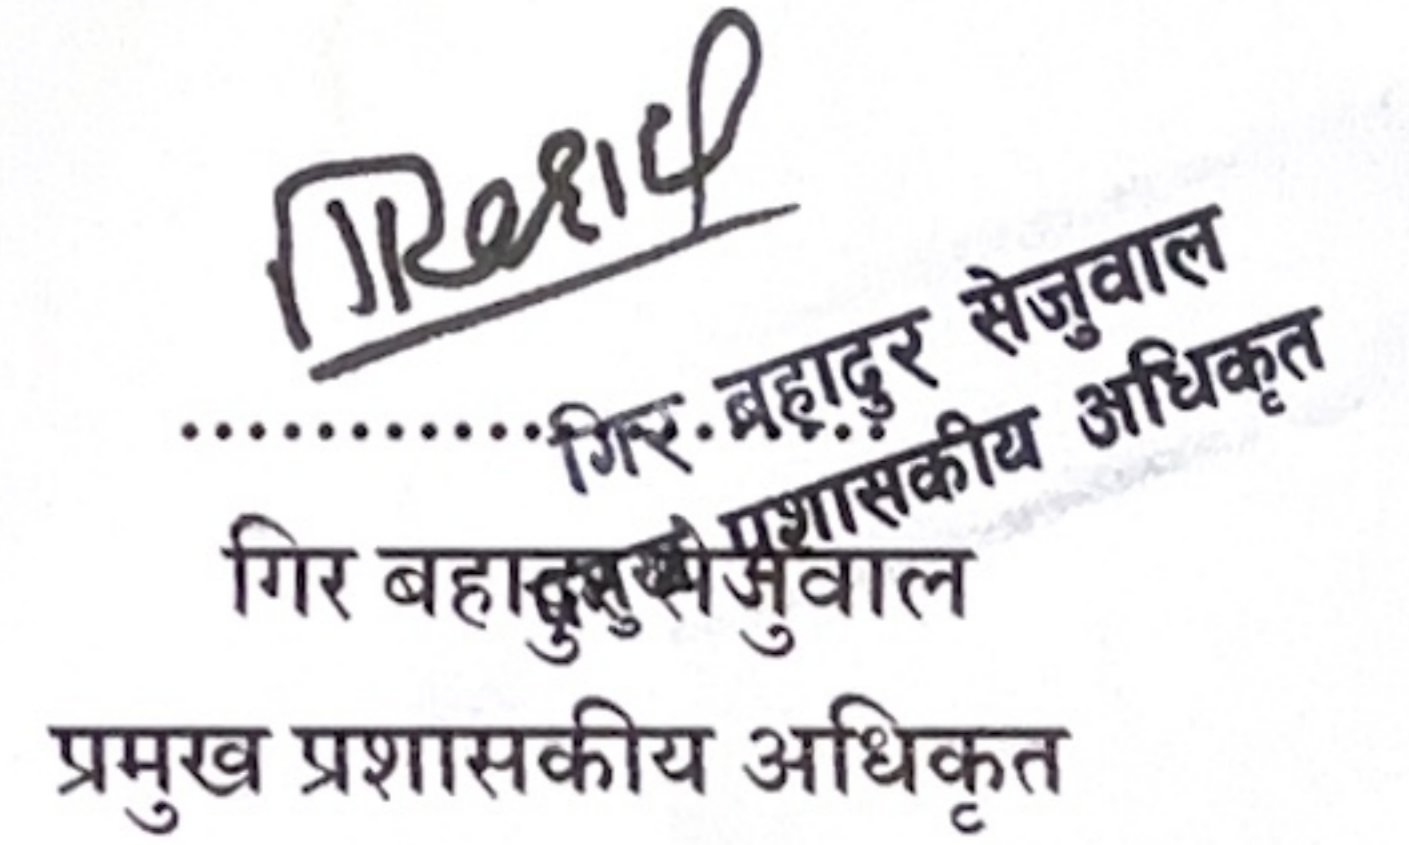 गिर बहादुर सेजुवाल
प्रमुख प्रशासकीय अधिकृत
............................
गिर बहादुर सेजुवाल
प्रमुख प्रशासकीय अधिकृत